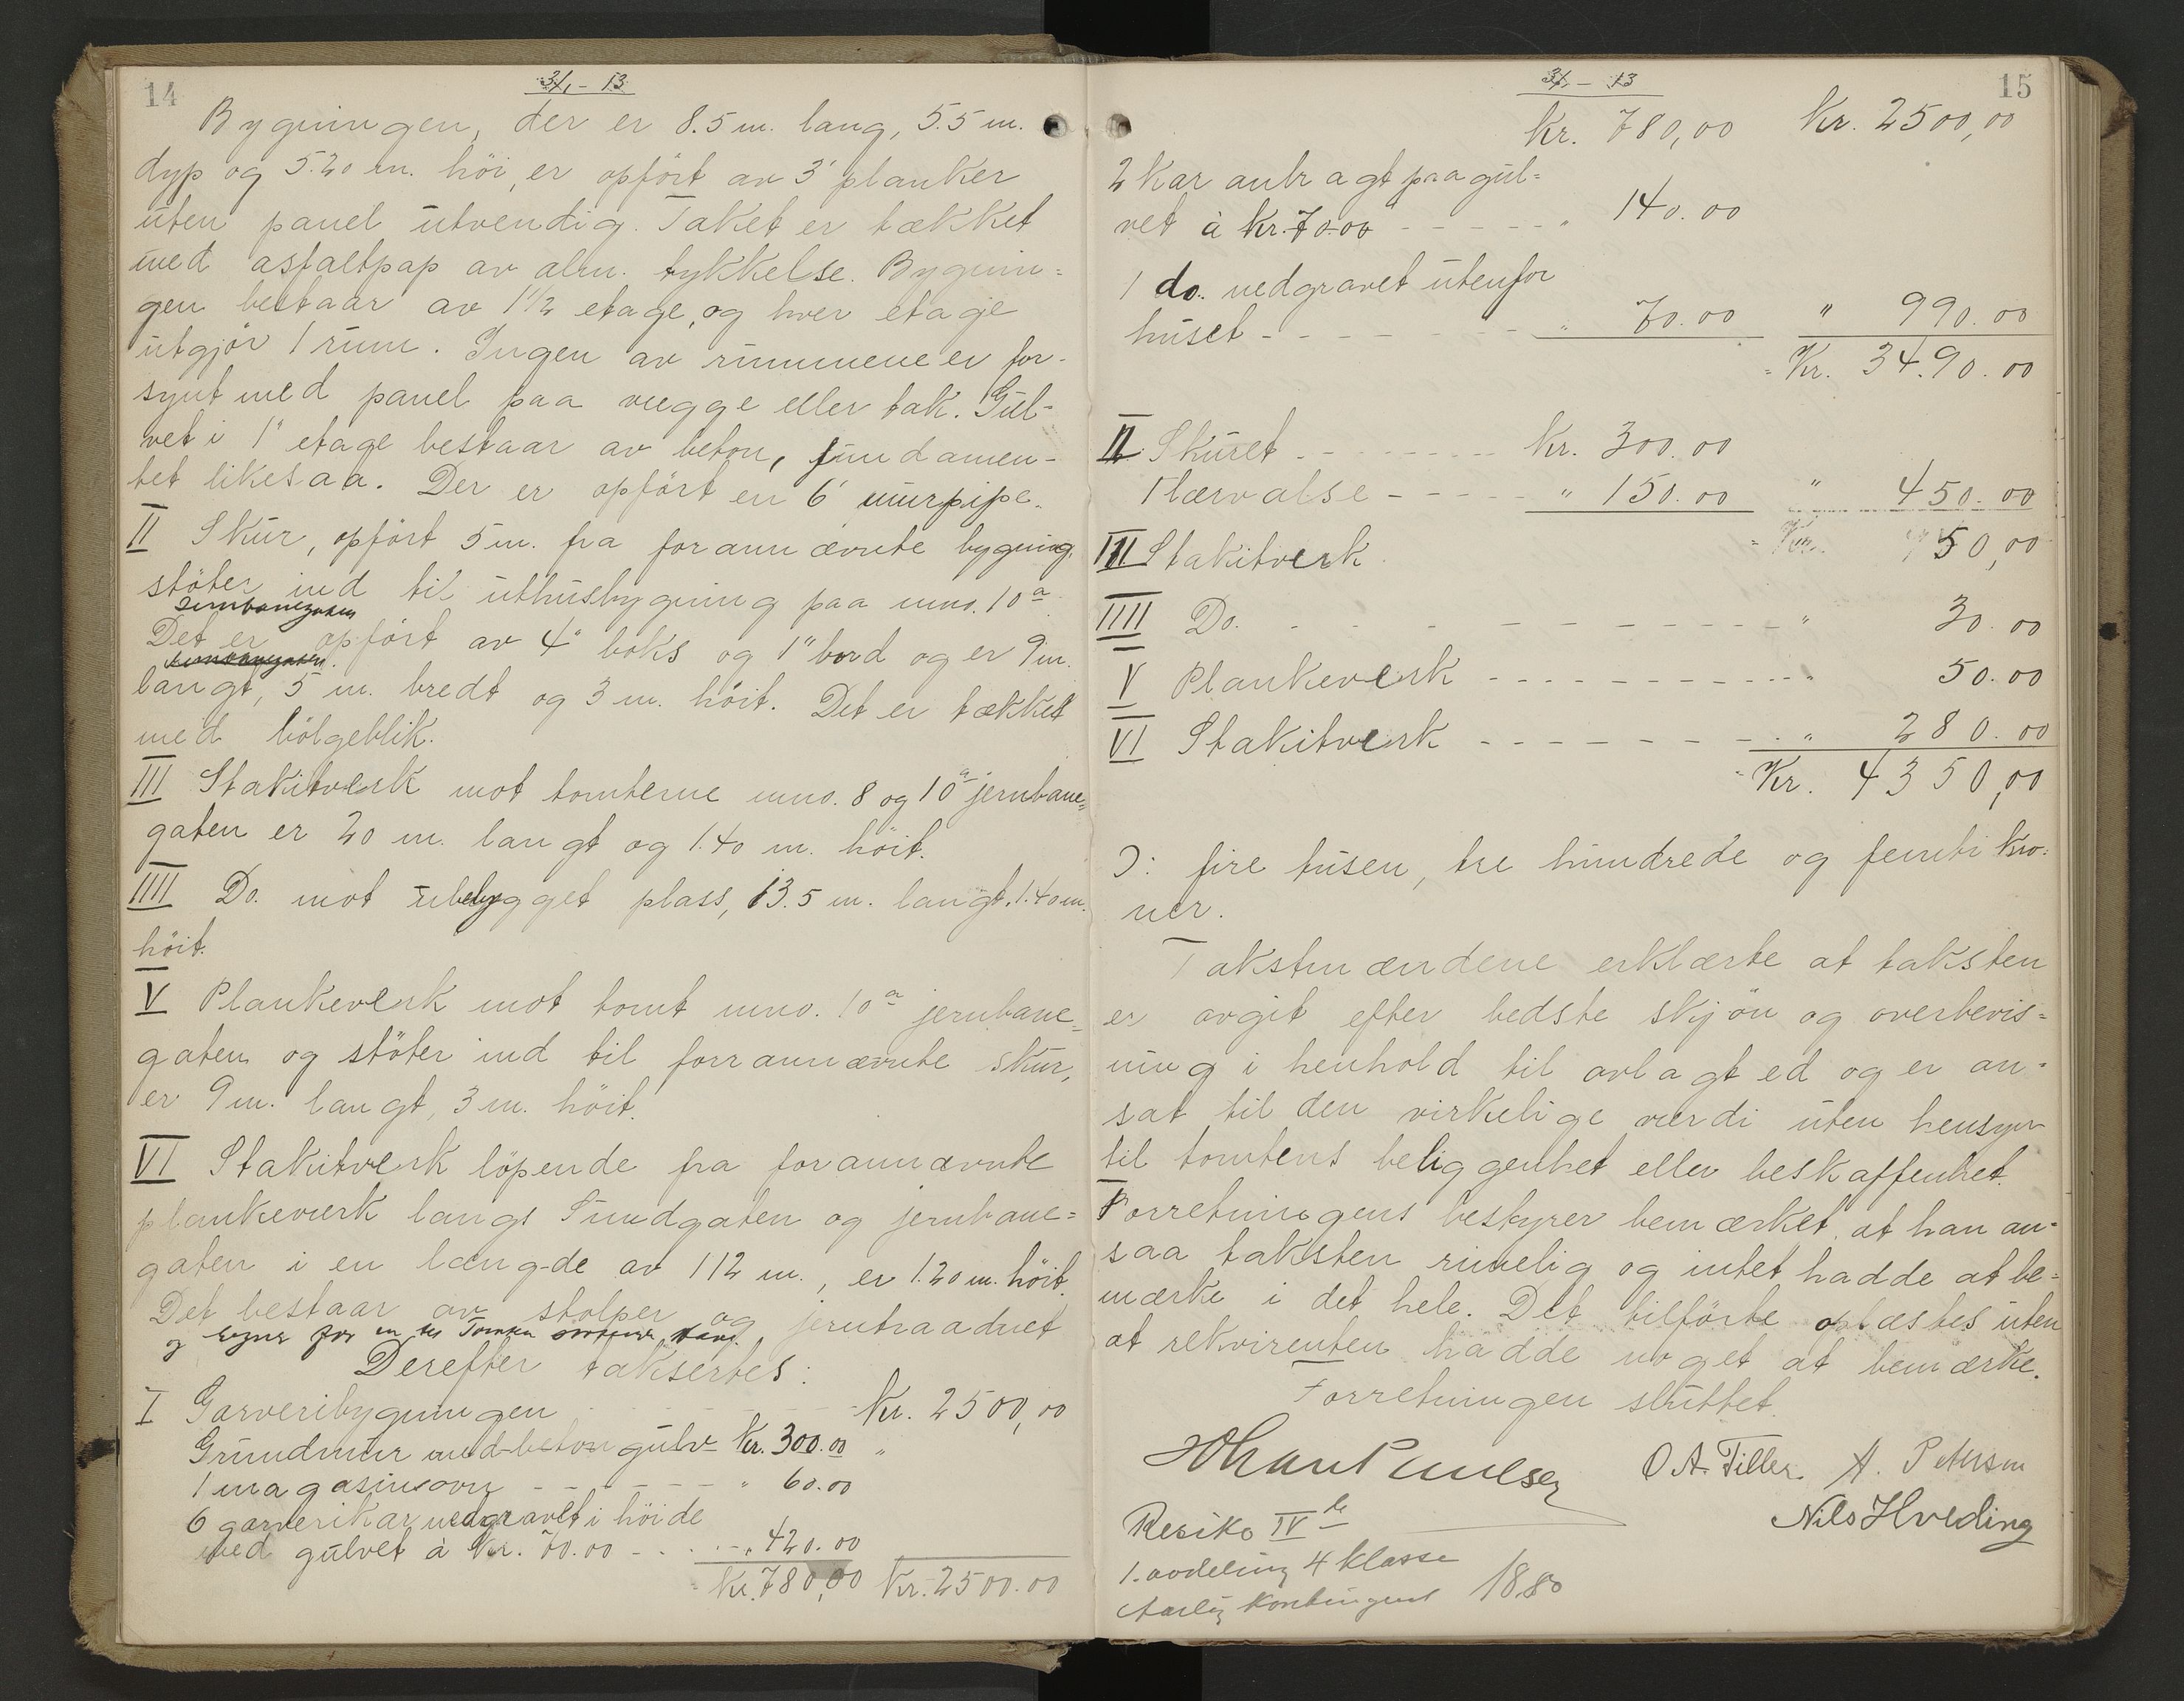 14
3/1 - 13
Bygningen, der er 8.5 m. lang, 5.5 m.
dyp og 5.20 m. höi, er opfört av 3" planker
uten panel utvendig. Taket er tækket
med asfaltpap av alm. tykkelse. Bygnin=
gen bestaar av 1 1/2 etage, og hver etage
utgjör 1 rum. Ingen av rummene er for-
synt med panel paa vægge eller tak. Gul-
vet i 1" etage bestaar av beton, fundamen-
tet likesaa. Der er opfört en 6" murpipe.
II Skur, opfört 5 m. fra forannævnte bygning,
stöter ind til uthusbygning paa mno. 10 a
Jernbanegaten
Det er opfört av 4" boks og 1" bord og er 9 m.
langt, 5 m. bredt og 3 m. höit. Det er tækket
med bölgeblik.
III Stakitverk mot tomterne mno. 8 og 10 a jernbane=
gaten er 20 m. langt og 1.40 m. höit.
IIII Do. mot ubebygget plass, 13.5 m. langt, 1.40 m.
höit.
V Plankeverk mot tomt mno. 10 a jernbane=
gaten og stöter ind til forrannævnte skur,
er 9 m. langt, 3 m. höit.
VI Stakitverk löpende fra forannævnte
plankeverk langs Sundgaten og jernbane=
gaten i en længde av 112 m., er 1.20 m. höit.
Det bestaar av stolper og jerntraadnet
Derefter taksertes:
I Garveribygningen Kr. 2500,00
Grundmur med beton gulv Kr. 300.00 "
1 magasinsovn - - - - " 60.00
6 garverikar nedgravet i höide
med gulvet à Kr. 70.00 - . . - " 420.00
Kr. 780,00 Kr. 2500.00
15
3/1 - 13
Kr. 780,00 Kr. 2500,00
2 kar anbragt paa gul=
vet à Kr. 70.00 - - - - - " 140.00
1 do. nedgravet utenfor
huset - - - - - - - " 70.00 " 990.00
= Kr. 3490.00
II. Skuret - - - - - - Kr. 300.00
1 lærvalse - - - - " 150.00 " 450.00
III Stakitverk = Kr. 50,00
IIII Do. - - - - - - - - " 30.00
V Plankeverk - - - - - - - - " 50.00
VI Stakitverk - - - - - - - " 280.00
= Kr. 4350,00
ɔ: fire tusen, tre hundrede og femti kro=
ner.
Takstmændene erklærte at taksten
er avgit efter bedste skjön og overbevis=
ning i henhold til avlagt ed og er an=
sat til den virkelige værdi uten hensyn
til tomtens beliggenhet eller beskaffenhet.
Forretningens bestyrer bemærket, at han an=
saa taksten rimelig og intet hadde at be=
mærke i det hele. Det tilförte oplæstes uten
at rekvirenten hadde noget at bemærke.
Forretningen sluttet.
Johan Paulsen O A. Tiller. A. Petersen
Nils Hveding
Resiko IV de
1. avdeling 4 klasse
Aarlig kontingent 18.80